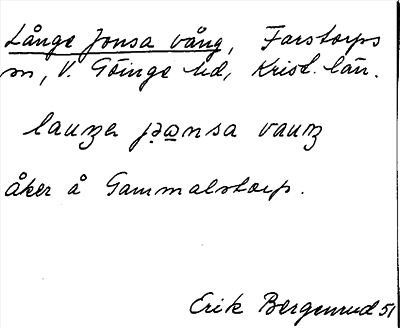 Långe Jonsa vång, Farstorps
sn, V. Göinge hd, Krist. län.
åker å Gammalstorp.
Erik Bergenrud 51